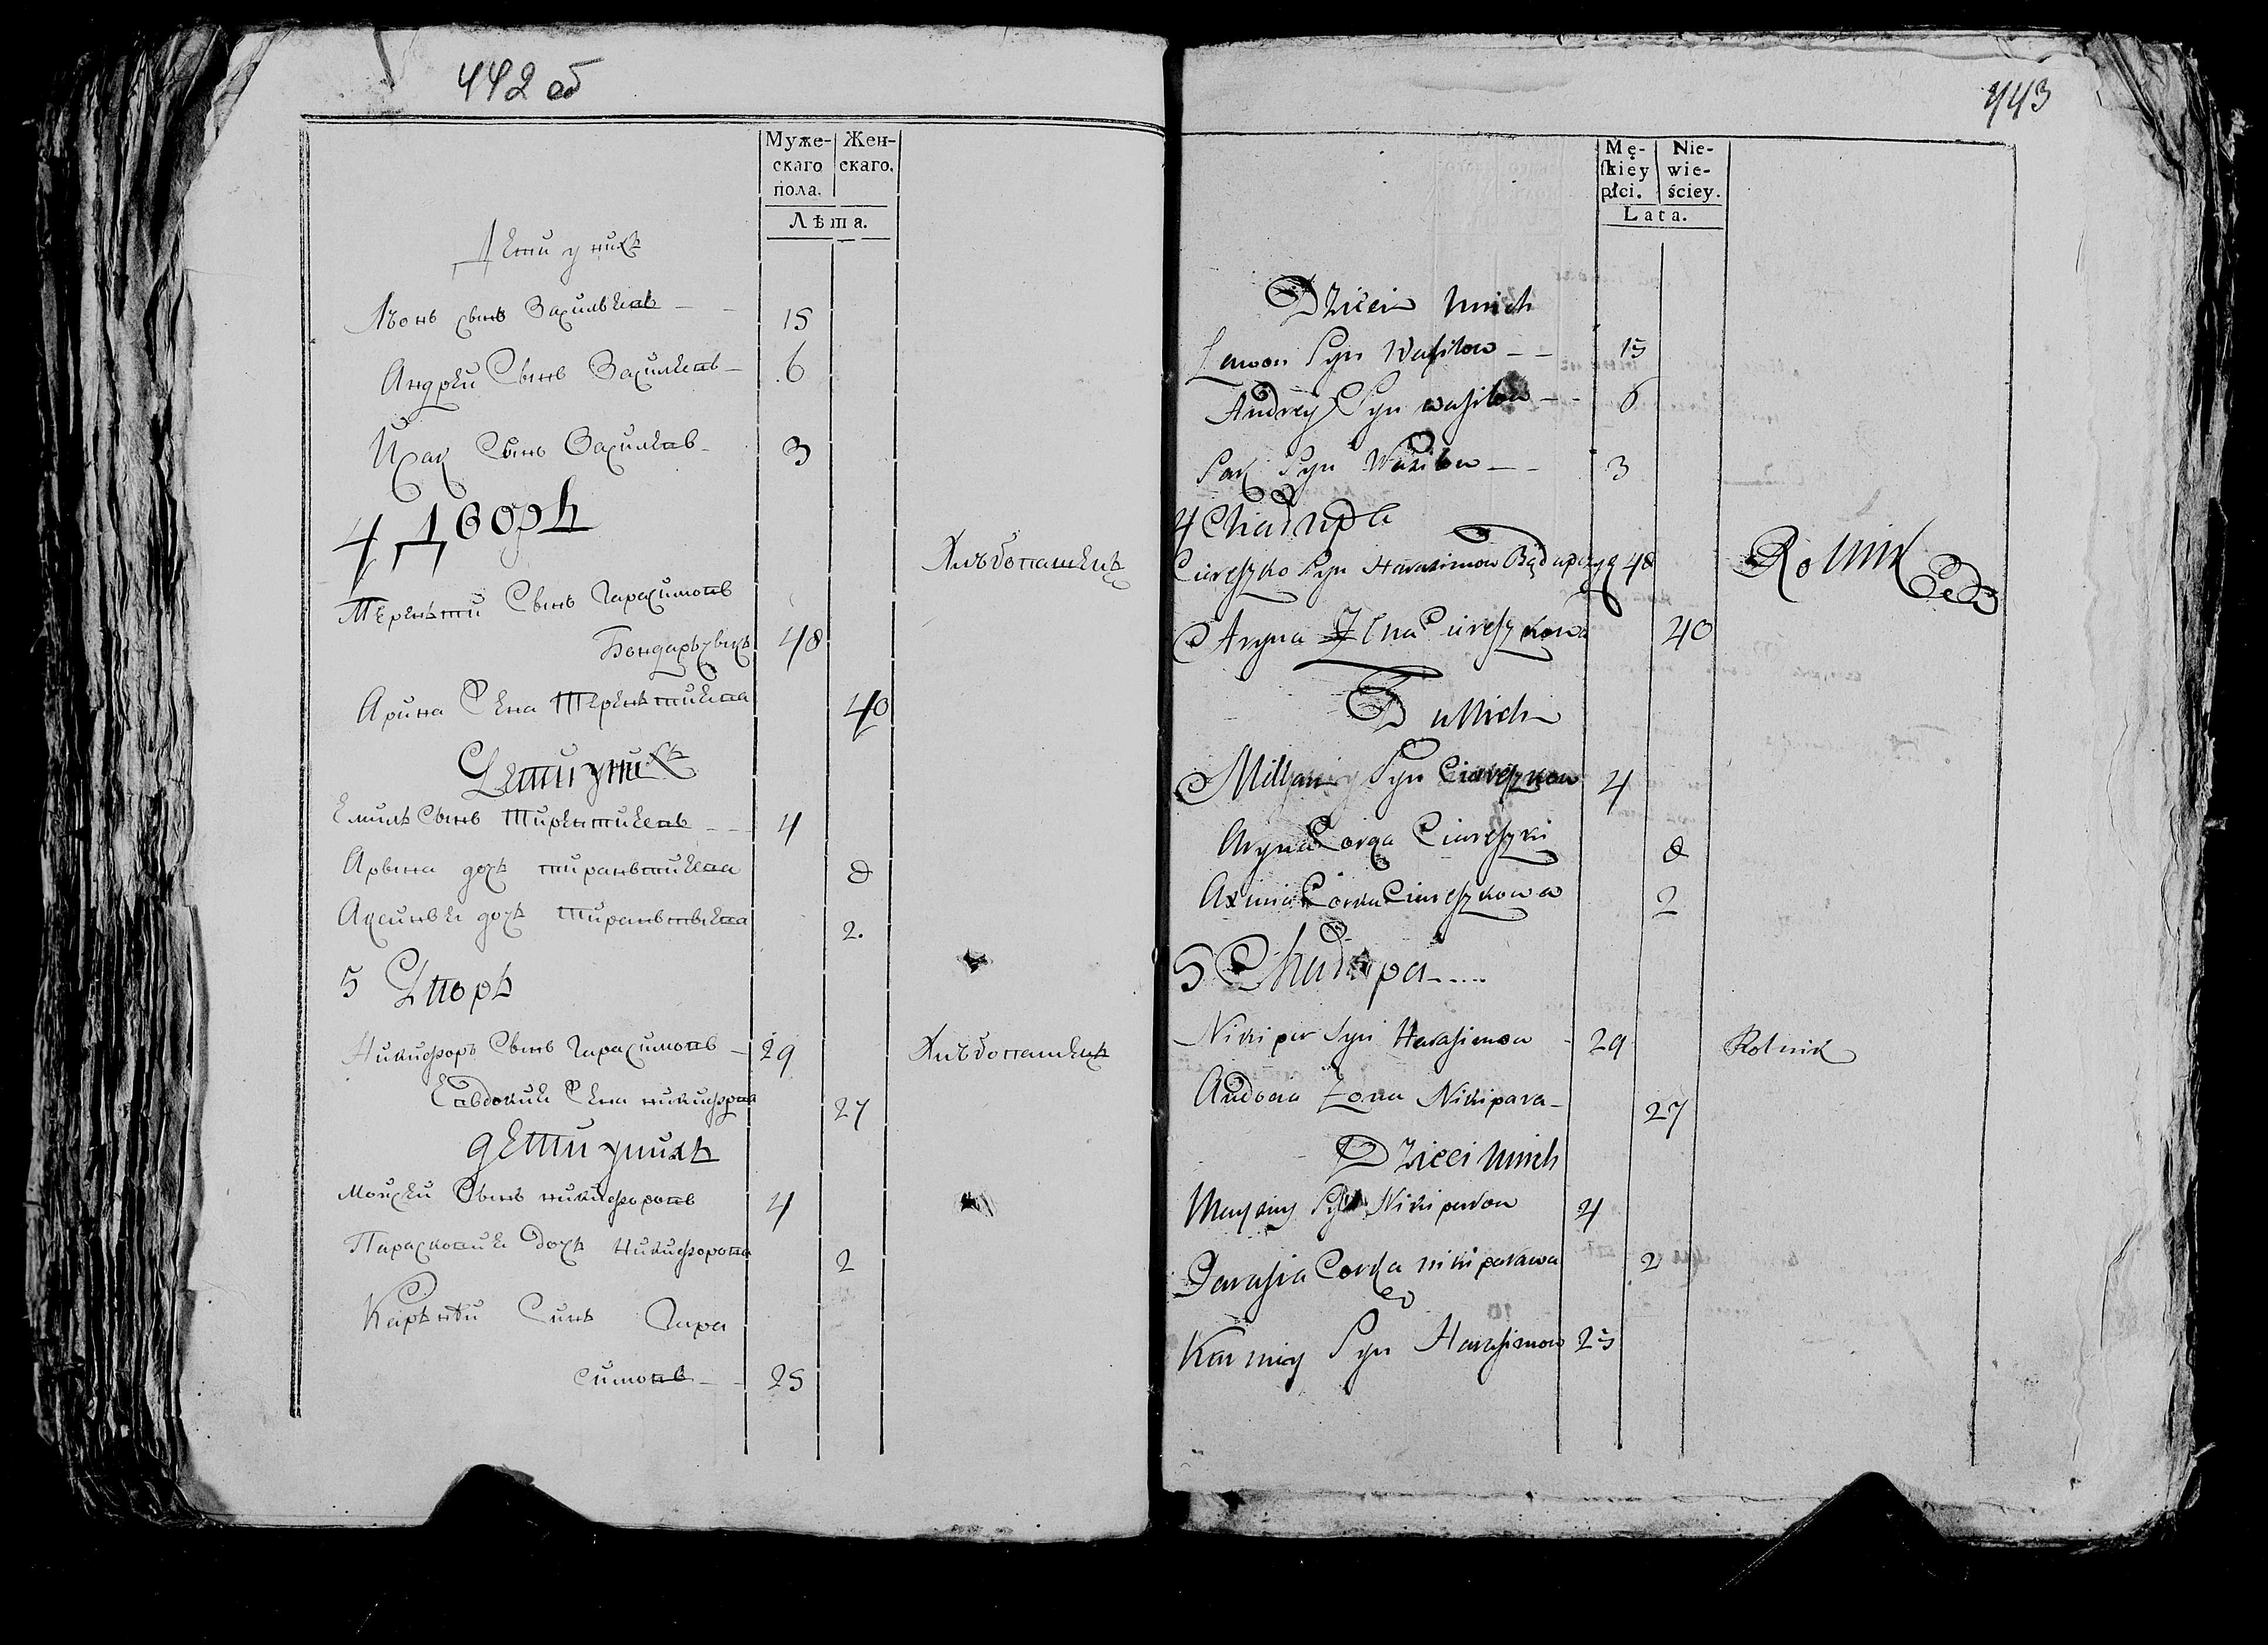 442 об
Муже-
скаго
пола.
Жен-
скаго.
Лѣта.
Дети у нихъ
Лѣонъ сынъ Василѣевъ 15
Андреи Сынъ Василевъ 6
Исак Сынъ Василевъ 3
4 Дворъ
Хлѣбопашецъ
Терентии Сынъ Гарасимовъ
Бондаръсвичъ 48
Арина Жена Терентиева 40
Дети у них
Емилъ Сынъ Тирентиевъ 4
Арына дочъ тирантиева 8
Аксинье дочъ Тирантьева 2.
5 Дворъ
Никифоръ Сынъ Гарасимовъ 29 Хлѣбопашецъ
Евдокие Жена никифра 27
дети унихъ
Моисеи Сынъ никифоровъ 4
Парасковие Дочъ Никифорова 2
Сынъ Гара
симовъ 25
443
Mę-
ſkiey
płci.
Nie-
wie-
ściey.
Lata.
Dzieci unich
Lewon Syn Wasilow 15
Andrey Syn wasilow 6
Sak Syn Wasilow 3
4 Chadupa
Ciareszko Syn Harasimow 48 Rolnik
Aryna Zena Ciareszkowa 40
D unich
Syn Ciareszkow 4
Aryna Corqa Ciareszki 8
Axinia Corka Ciareszkowa 2
5 Chadupa....
Nikipar Syn Harasimow 29 Rolnik
Audocia Zona Nikipara 27
Dzieci unich
Syn Nikiparow 4
Parasia Corka nikiparawa 2
Syn Harasimow 25